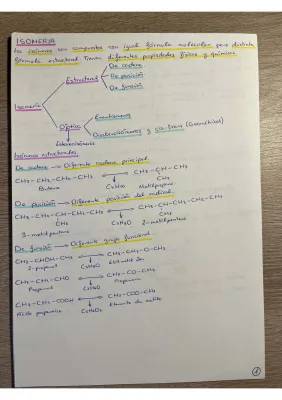 ISOMERÍA
Los isómeros son compuestos con igual fórmula molecular pero distinta
fórmula estructural. Tienen diferentes propiedades físicas y químicas.
De cadena
Estructural
De posición
De función
Isomería
Enantiómeros
Óptica
Diastereoisómeros y cis-trans (Geométrica)
Estereoisómeros
Isómeros estructurales
De cadena → Diferente cadena principal
CH3-CH2-CH2-CH3 ↔ CH3-CH-CH3
CH3
Butano C4H10 Metilpropano
De posición → Diferente posición del radical
CH3-CH2-CH-CH2-CH3 ↔ CH3-CH-CH2-CH2-CH3
CH3 CH3
3-metilpentano 2-metilpentano
De función → Diferente grupo funcional
CH3-CHOH-CH3 ↔ CH3-CH2-O-CH3
2-propanol C3H8O
CH3-CH2-CHO ↔ CH3-CO-CH3
Propanal C3H6O Propanona
CH3-CH2-COOH ↔ CH3-COO-CH3
Ácido propanoico C3H6O2 Etanoato de metilo
1